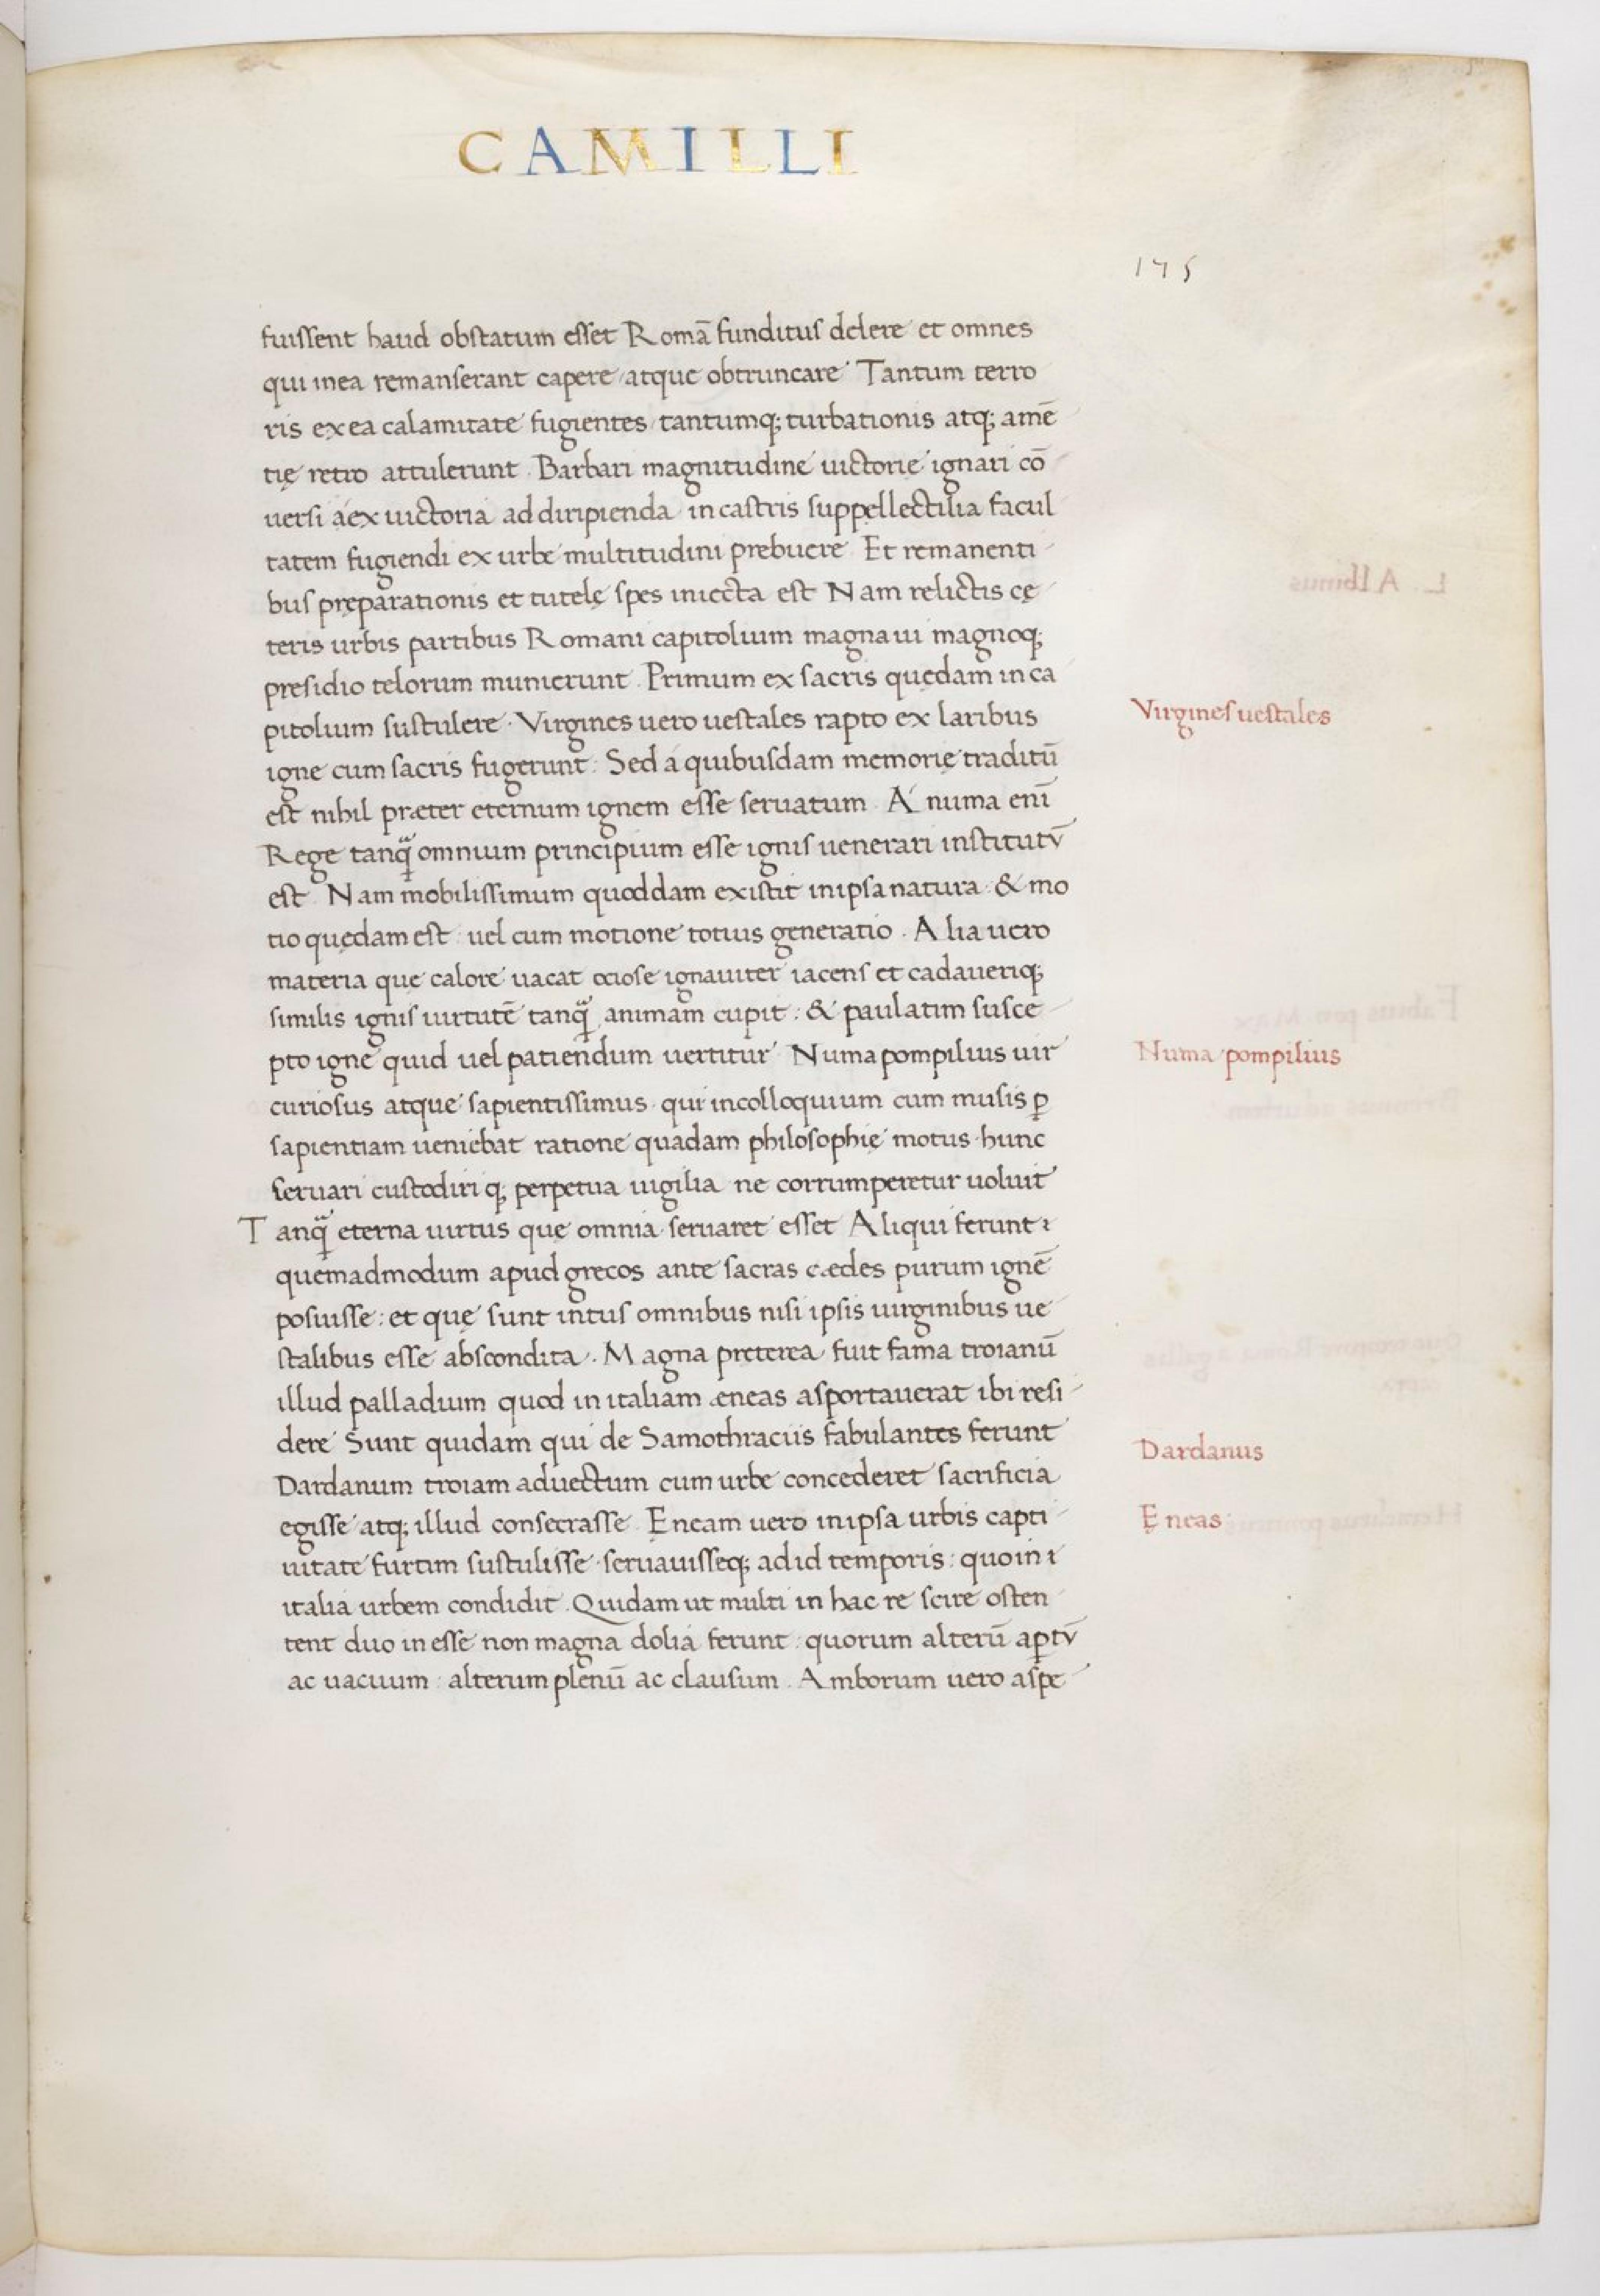 CAMILLI
175
fuissent haud obstatum esset Romā funditus delere et omnes
qui inea remanserant capere atque obtruncare Tantum terro
ris ex ea calamitate fugientes tantumq; turbationis atq; amē
tię retro attulerunt. Barbari magnitudine uictorię ignari cō
uersi á ex uictoria ad diripienda in castris suppellectilia facul
tatem fugiendi ex urbe multitudini prebuere Et remanenti
bus pręparationis et tutelę spes iniecta est Nam relictis cę
teris urbis partibus Romani capitolium magna ui magnoq;
presidio telorum munierunt. Primum ex sacris quędam in ca
pitolium sustulere. Virgines uero uestales rapto ex laribus
Virgines uestales
igne cum sacris fugerunt: Sed á quibusdam memorię traditū
est nihil præter eternum ignem esse seruatum. Á numa enī
Rege tanq̄ omnium principium esse ignis uenerari institutū
est. Nam mobilissimum quoddam existit in ipsa natura: & mo
tio quędam est: uel cum motione totius generatio. Alia uero
materia quę calore uacat ociose ignauiter iacens et cadaueriq;
similis ignis uirtutē tanq̄ animam cupit: & paulatim susce
pto igne quid uel patiendum uertitur Numa pompilius uir
Numa pompilius
curiosus atque sapientissimus. qui in colloquium cum musis ꝑ
sapientiam ueniebat ratione quadam philosophię motus. hunc
seruari custodiri q; perpetua uigilia ne corrumperetur uoluit
Tanq̄ eterna uirtus quę omnia seruaret esset Aliqui ferunt
quemadmodum apud grecos ante sacras cædes purum ignē
posuisse: et quę sunt intus omnibus nisi ipsis uirginibus ue
stalibus esse abscondita. Magna pręterea fuit fama troianū
illud palladium quod in italiam æneas asportauerat ibi resi
dere Sunt quidam qui de Samothraciis fabulantes ferunt
Dardanus
Dardanum troiam aduectum cum urbe concederet sacrificia
egisse atq; illud consecrasse. Ęneam uero in ipsa urbis capti
Ęneas
uitate furtim sustulisse. seruauisseq; ad id temporis: quo in
italia urbem condidit. Quidam ut multi in hac re scire osten
tent duo in esse non magna dolia ferunt: quorum alterū aꝑtū
ac uacuum: alterum plenū ac clausum. Amborum uero aspe